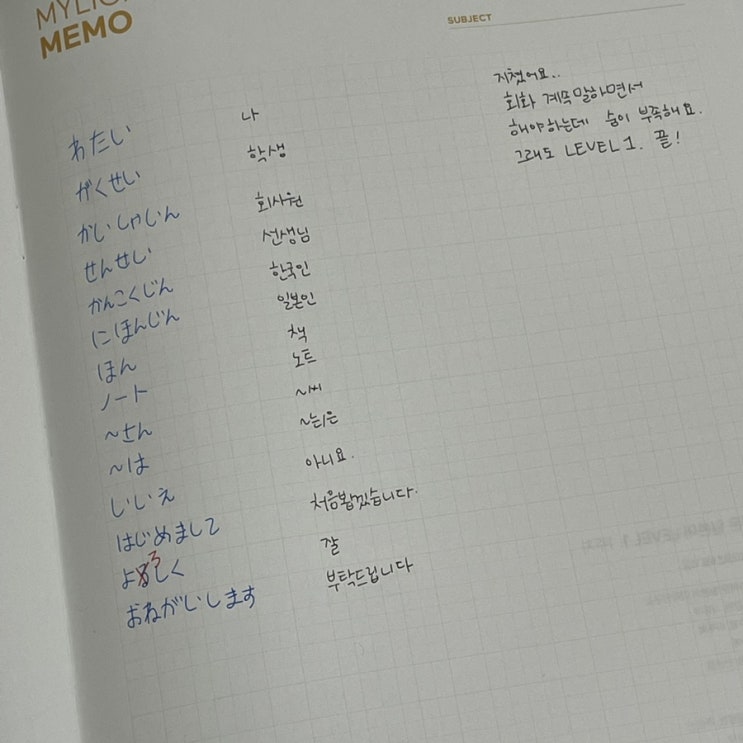 MEMO
SUBJECT
わたい 나
がくせい 학생
かいしゃじん 회사원
せんせい 선생님
かんこくじん 한국인
にほんじん 일본인
ほん 책
ノート 노트
~さん ~씨
~は ~는/은
いいえ 아니요.
はじめまして 처음뵙겠습니다.
よろしく 잘
おねがいします 부탁드립니다
지쳤어요..
회화 계속말하면서
해야하는데 숨이 부족해요.
그래도 LEVEL 1. 끝!